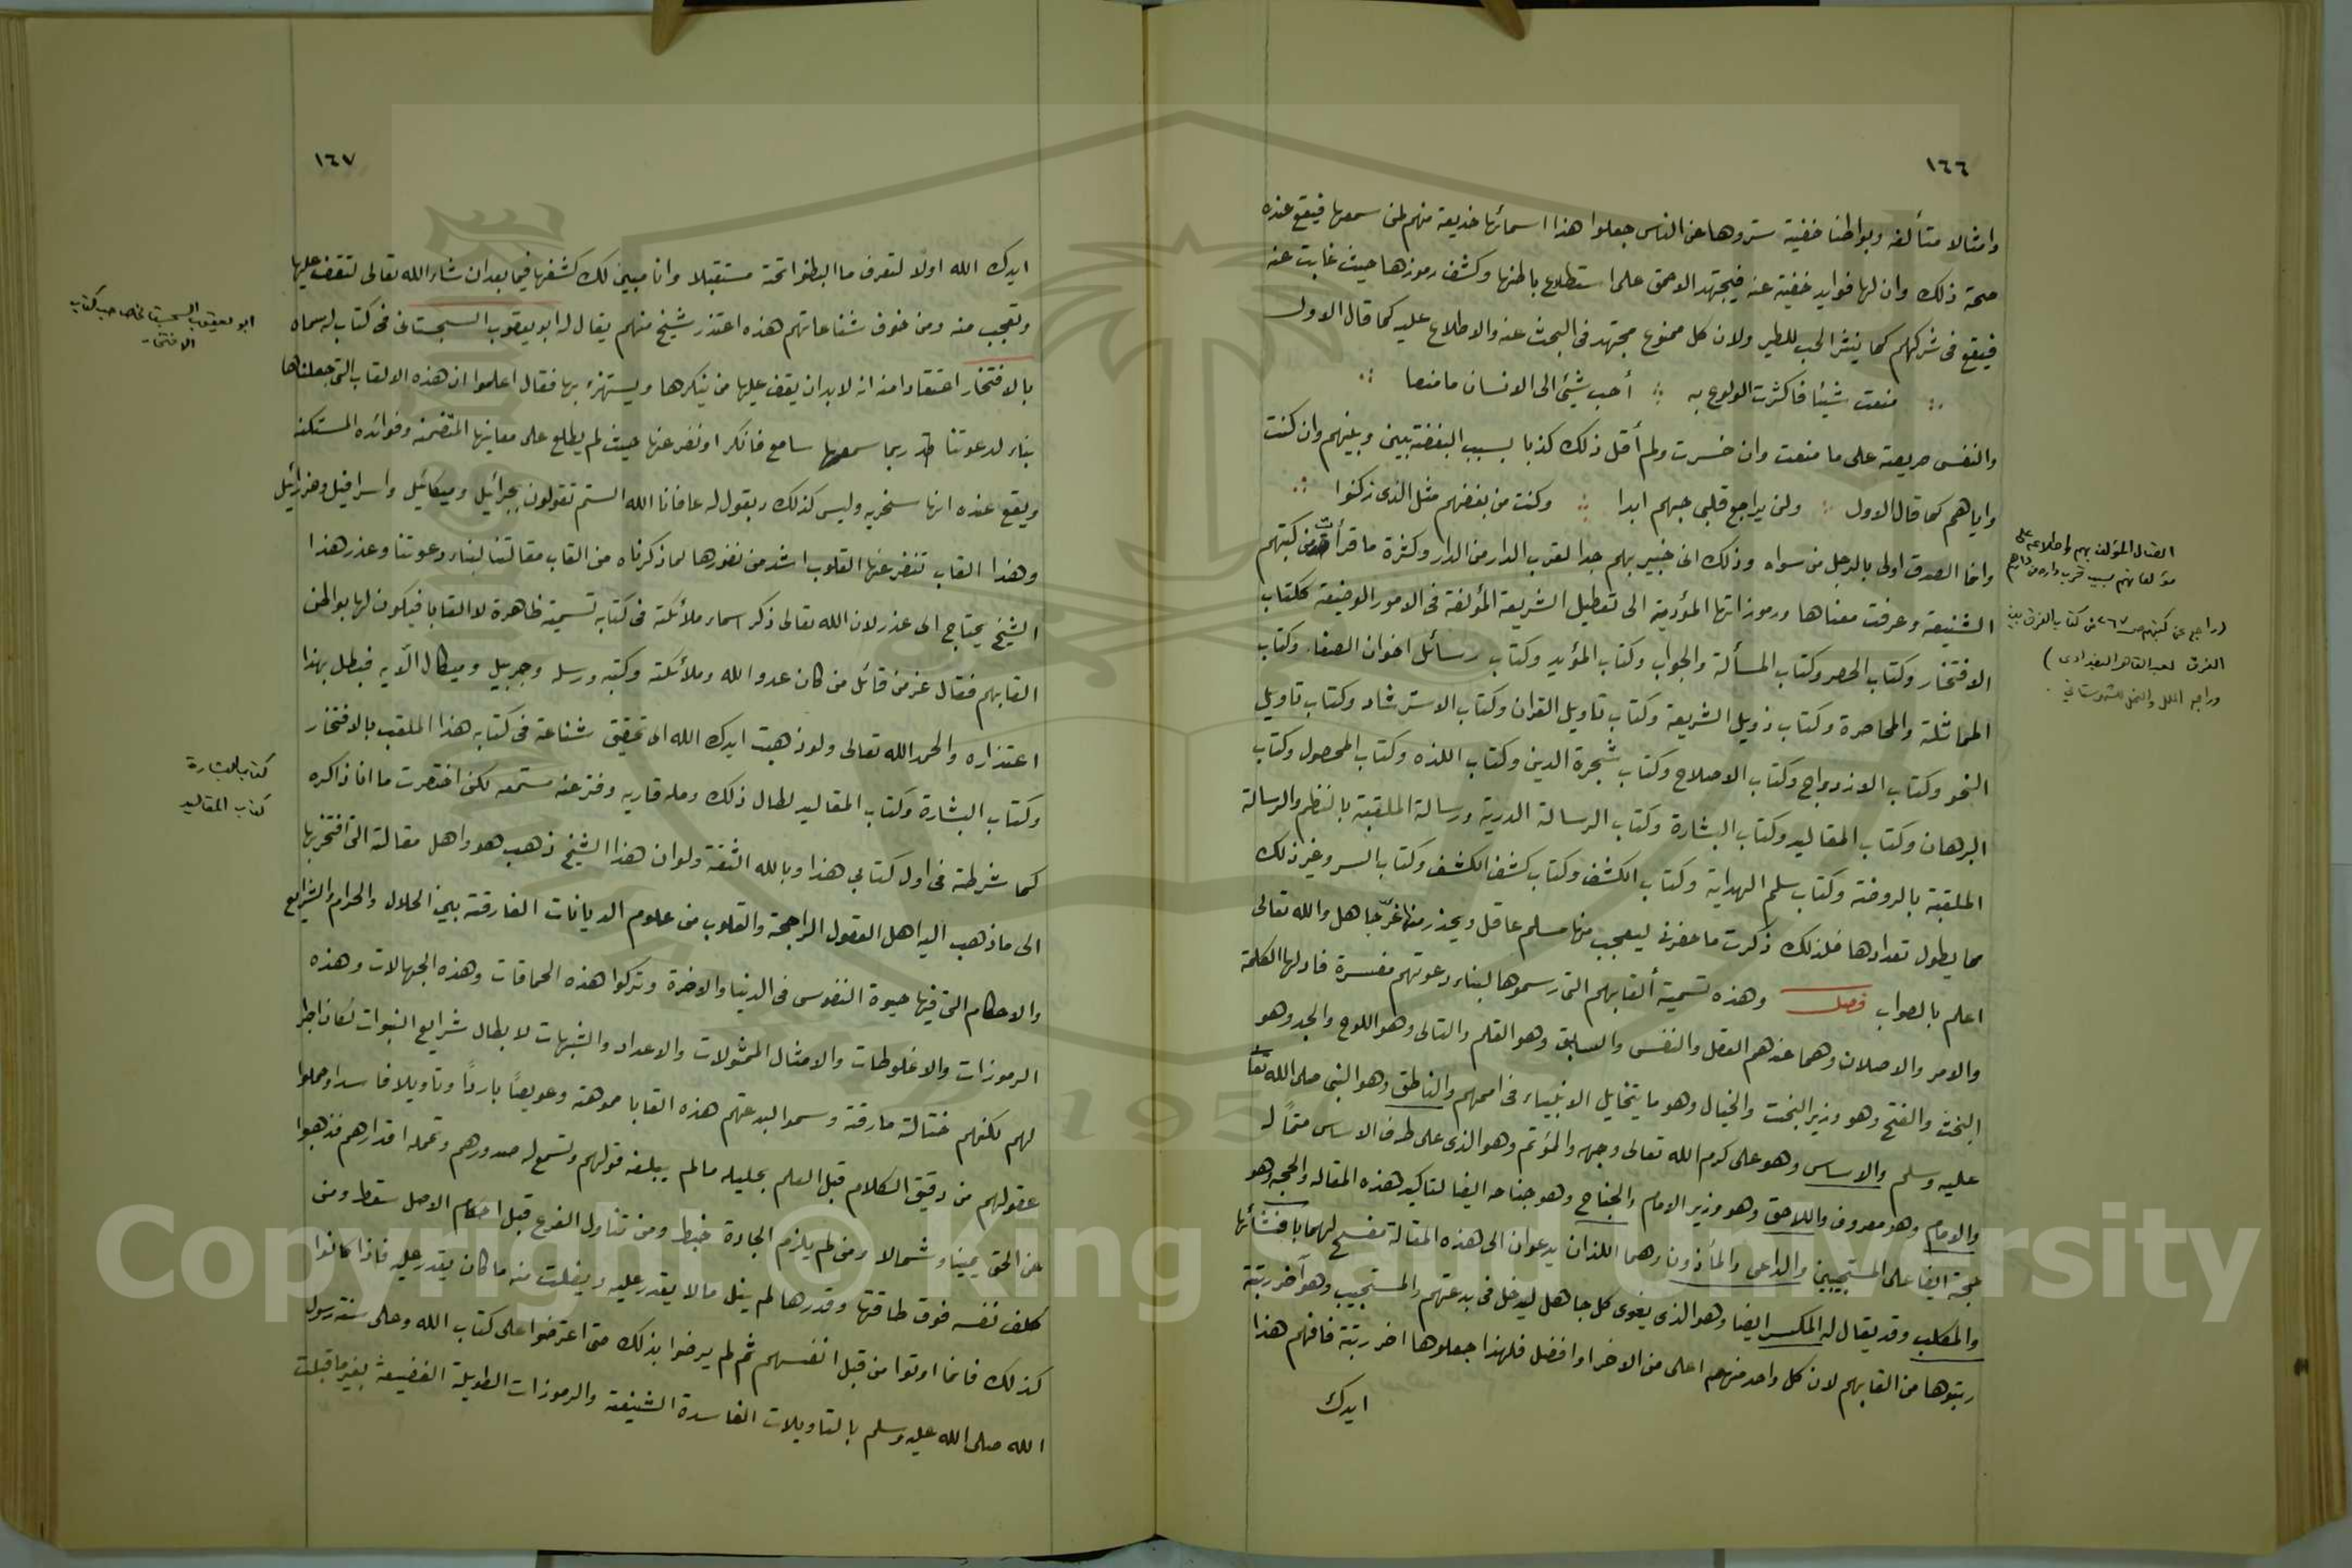 ١٦٦
وامثالا متألفه وبواطنا خفية ستروها عن الناس جعلوا هذا اسمائها خديعة منهم لمن سمعها فيقع عنده
صحة ذلك وان لها فوايد خفية عنه فيجتهد الاحمق على استطلاع باطنها وكشف رموزها حيث غابت عنه
فيقع فى شركهم كما ينثر الحب للطير ولان كل ممنوع مجتهد فى البحث عنه والاطلاع عليه كما قال الاول
منعت شيئا فاكثرت الولوع به ∴ أحب شيئ الى الانسان ما منعا ∴
والنفس حريصة على ما منعت وان خسرت ولم أقل ذلك كذبا بسبب البغضة بينى وبينهم وان كنت
واياهم كما قال الاول ∴ ولن يراجع قلبى حبهم ابدا ∴ وكنت من بغضهم مثل الذى زكنوا ∴
وانما الصدق اولى بالرجل من سواه وذلك انى خبير بهم جدا لقرب الدار من الدار وكثرة ما قرأت من كتبهم
الشنيعة وعرفت معناها ورموزاتها المؤدية الى تعطيل الشريعة المؤلفة فى الامور الوضيعة ككتاب
الافتخار وكتاب الحصر وكتاب المسألة والجواب وكتاب المؤيد وكتاب رسائل اخوان الصفا. وكتاب
المماثلة والمحاصرة وكتاب ذويل الشريعة وكتاب تاويل القران وكتاب الاسترشاد وكتاب تاويل
النحو وكتاب الازدواج وكتاب الاصلاح وكتاب شجرة الدين وكتاب اللذه وكتاب المحصول وكتاب
البرهان وكتاب المقاليد وكتاب البشارة وكتاب الرسالة الدرية ورسالة الملقبة بالنظم والرسالة
الملقبة بالروضة وكتاب سلم الهداية وكتاب الكشف وكتاب كشف الكشف وكتاب السر وغير ذلك
مما يطول تعدادها فلذلك ذكرت ما حضرنى ليعجب منها مسلم عاقل ويحذر منها غرّ جاهل والله تعالى
اعلم بالصواب فصل وهذه تسمية ألقابهم التى رسموها لبناء دعوتهم مفسرة فاولها الكلمة
والامر والاصلان وهما عندهم العقل والنفس والسابق وهو القلم والتالى وهو اللوح والجد وهو
البخت والفتح وهو وزير البخت والخيال وهو ما يتخايل الانبياء فى اممهم والناطق وهو النبى صلى الله تعا
عليه وسلم والاساس وهو على كرم الله تعالى وجهه والمؤتم وهو الذى على طرف الاساس متمًا له
والامام وهو معروف واللاحق وهو وزير الامام والجناح وهو جناحه ايضا لتاكيد هذه المقاله والحجه وهو
حجة ايضا على المستجيبين والداعى والمأذون وهما اللذان يدعوان الى هذه المقالة مفسح لهما بافشائها
والمكلب وقد يقال له المكسر ايضا وهو الذى يغوى كل جاهل ليدخل فى بدعتهم والمستجيب وهو آخر رتبة
رتبوها من القابهم لان كل واحد منهم اعلى من الاخر او افضل فلهذا جعلوها اخر رتبة فافهم هذا
ايدك
اتصال المؤلف بهم واطلاعه على
مؤلفاتهم بسبب قرب داره من دارهم
(راجع عن كتبهم ص ٢٦٧ من كتاب الفرق بين
الفرق لعبد القاهر البغدادى)
وراجع الملل والنحل للشهرستانى.
١٦٧
ايدك الله اولًا لتعرف ما ابطنوا تحته مستقبلا وانا مبين لك كشفها فيما بعد ان شاء الله تعالى لتقف عليها
وتعجب منه ومن خوف شناعاتهم هذه اعتذر شيخ منهم يقال له ابو يعقوب السجستانى فى كتاب له سماه
بالافتخار اعتقادا منه انه لا بد ان يقف عليها من ينكرها ويستهزئ بها فقال اعلموا ان هذه الالقاب التى جعلناها
بناء لدعوتنا ربما سمعها سامع فانكر او نفر عنها حيث لم يطلع على معانيها المتضمنه وفوائده المستكنه
ويقع عنده انها سخريه وليس كذلك ويقول له عافانا الله الستم تقولون بجبرائيل وميكائيل واسرافيل وعزرائيل
وهذا القاب تنفر عنها القلوب اشد من نفورها لما ذكرناه من القاب مقالتنا لبناء دعوتنا وعذر هذا
الشيخ يحتاج الى عذر لان الله تعالى ذكر اسماء ملائكته فى كتابه تسمية ظاهرة لا القابا فيكون لها بواطن
القابهم فقال عز من قائل من كان عدوا لله وملائكته وكتبه ورسله وجبريل وميكال الآيه فبطل بهذا
اعتذاره والحمد الله تعالى ولو ذهبت ايدك الله الى تحقيق شناعة فى كتابه هذا الملقب بالافتخار
وكتاب البشارة وكتاب المقاليد لطال ذلك ومله قاريه وفتر عنه مستمعه لكن اختصرت ما انا ذاكره
كما شرطته فى اول كتابى هذا وبالله الثقة ولو ان هذا الشيخ ذهب هو واهل مقالته التى افتخر بها
الى ما ذهب اليه اهل العقول الراجحة والقلوب من علوم الديانات الفارقة بين الحلال والحرام والشرايع
والاحكام التى فيها حيوة النفوس فى الدنيا والاخرة وتركوا هذه الحماقات وهذه الجهالات وهذه
الرموزات والاغلوطات والامثال الممثولات والاعداد والشبهات لابطال شرايع النبوات لكان
لهم لكنهم ختالة مارقة وسموا لبدعتهم هذه القابا مموهة وعويصًا باردًا وتاويلا فاسدا وحملوا
عقولهم من دقيق الكلام قبل العلم بجليله ما لم يبلغه قولهم وتسمع له صدورهم وتحمله اقدارهم فذهبوا
عن الحق يمينا وشمالا ومن لم يلزم الجادة خبط ومن تناول الفرع قبل احكام الاصل سقط ومن
كلف نفسه فوق طاقتها وقدرها لم ينل ما لا يقدر عليه ويفلت منه ما كان يقدر عليه فاذا كانوا
كذلك فانما اوتوا من قبل انفسهم ثم لم يرضوا بذلك حتى اعترضوا على كتاب الله وعلى سنة رسول
الله صلى الله عليه وسلم بالتاويلات الفاسدة الشنيعة والرموزات الطويلة الفضيعة بغير ما قبلت
ابو يعقوب السجستانى صاحب كتاب
الافتخار
كتاب البشارة
كتاب المقاليد
Copyright © King Saud University
195